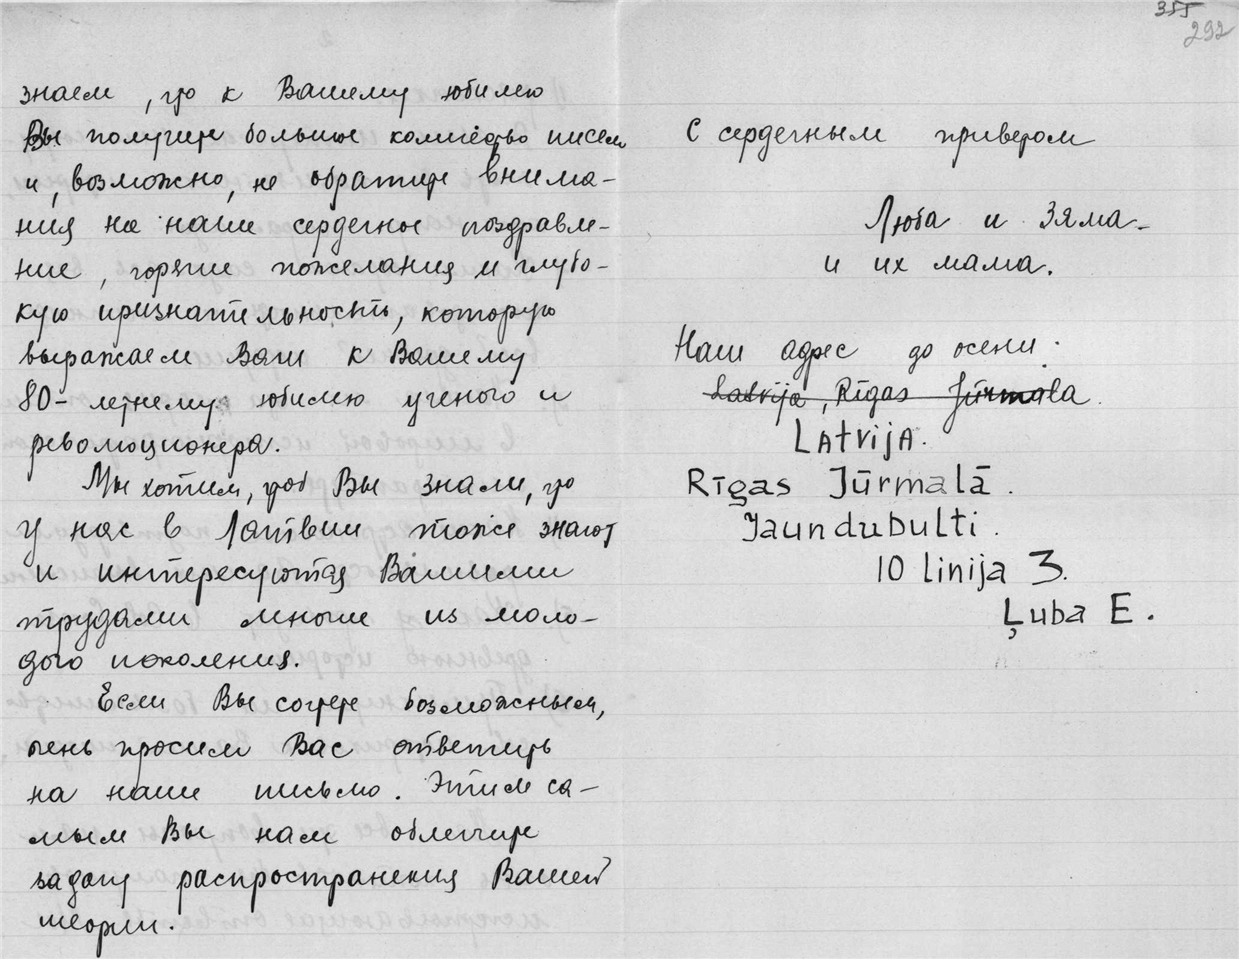 355
292
знаем, что к Вашему юбилею
Вы получите большое количество писем
и, возможно, не обратите внима-
ния на наше сердечное поздравле-
ние, горячие пожелания и глубо-
кую признательность, которую
выражаем Вам к Вашему
80-летнему юбилею ученого и
революционера.
Мы хотим, чтоб Вы знали, что
у нас в Латвии тоже знают
и интересуются Вашими
трудами многие из моло-
дого поколения.
Если Вы сочтете возможным,
очень просим Вас ответить
на наше письмо. Этим са-
мым Вы нам облегчите
задачу распространения Вашей
теории.
С сердечным приветом
Люба и Зяма-
и их мама.
Наш адрес до осени:
Latvija, Rīgas Jūrmala.
Latvija.
Rīgas Jūrmalā.
Jaundubulti.
10 linija 3.
Ļuba E.